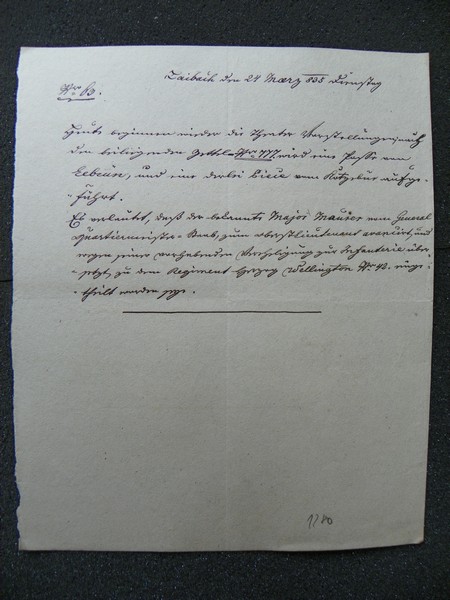 Laibach den 24 März 835 Dienstag
No. 63.
Heute beginnen wieder die Theater Vorstellungen, nach
dem beiliegenden Zettel No. 177 wird eine Posse von
Lebrün, und eine derlei Piece von Kotzebue aufge-
führt.
Es verlautet, daß der bekannte Major Mauser vom General
Quartiermeister Staab, zum Oberstlieutenant avancirt, und
wegen seiner vorhabenden Verehligung zur Infanterie über-
setzt, zu dem Regiment Herzog Wellington No. 42. einge-
theilt worden seye.
1280